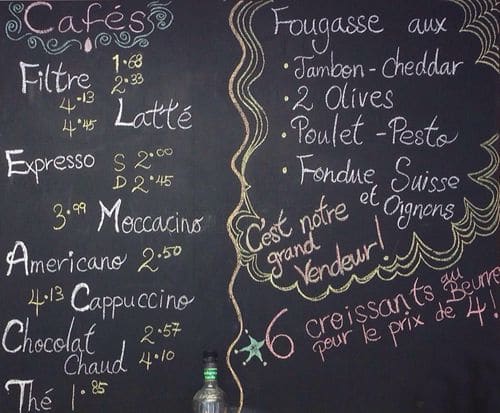 Cafés
Filtre 1.68
2.33
4.13 Latté
4.45
Expresso S 2.00
D 2.45
3.99 Moccacino
Americano 2.50
4.13 Cappuccino
Chocolat 2.57
Chaud 4.10
Thé 1.85
Fougasse aux
• Jambon-Cheddar
• 2 Olives
• Poulet-Pesto
• Fondue Suisse
et Oignons
C'est notre
grand
Vendeur!
6 croissants au Beurre
pour le prix de 4!